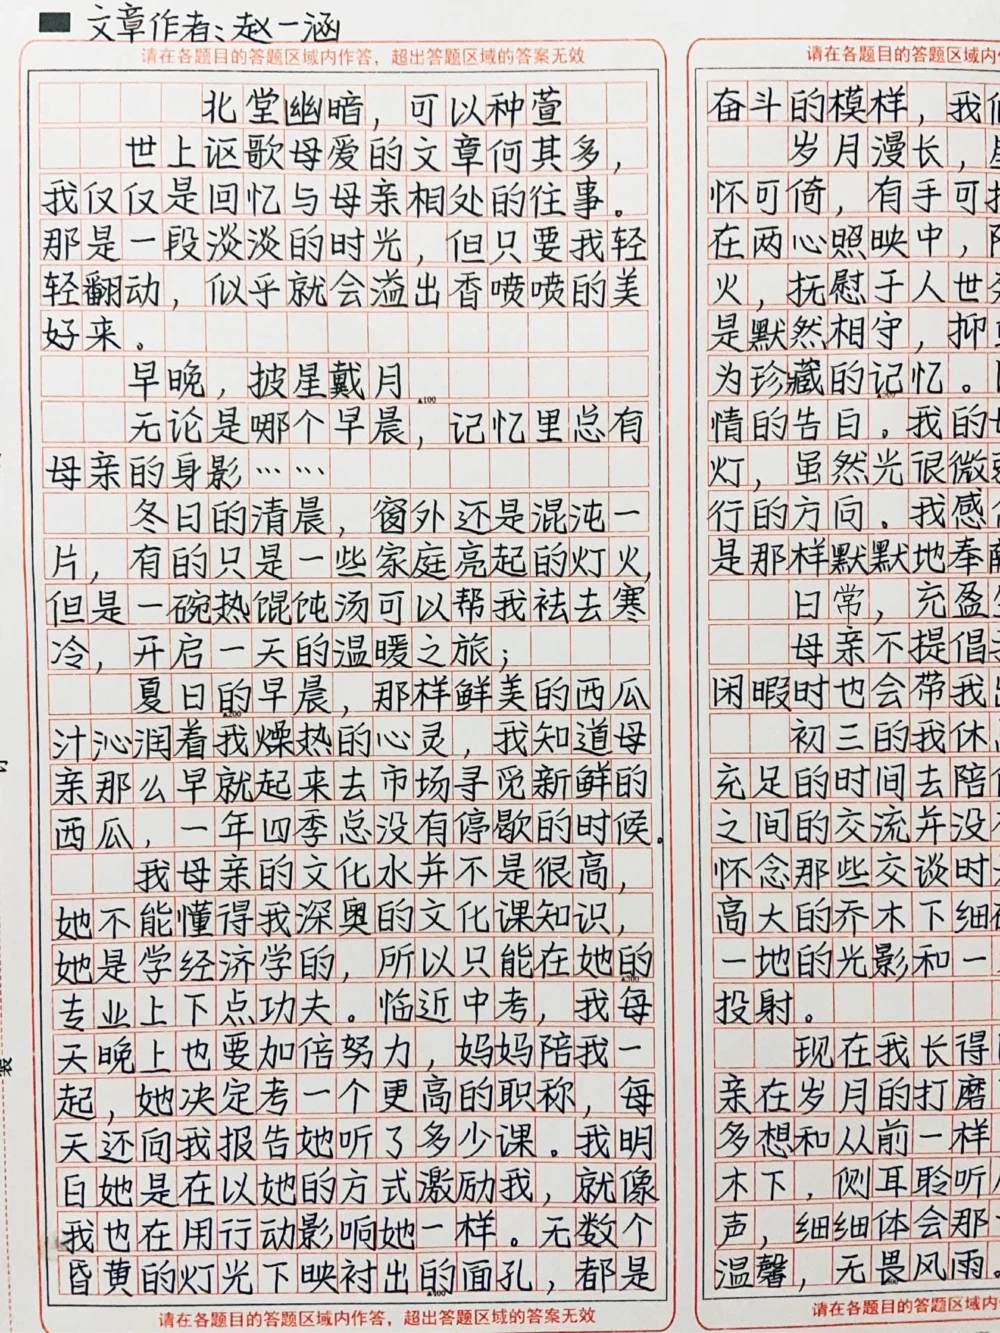 文章作者:赵一涵
请在各题目的答题区域内作答，超出答题区域的答案无效
北堂幽暗，可以种萱
世上讴歌母爱的文章何其多，
我仅仅是回忆与母亲相处的往事。
那是一段淡淡的时光，但只要我轻
轻翻动，似乎就会溢出香喷喷的美
好来。
早晚，披星戴月
▲100
无论是哪个早晨，记忆里总有
母亲的身影……
冬日的清晨，窗外还是混沌一
片，有的只是一些家庭亮起的灯火，
但是一碗热馄饨汤可以帮我祛去寒
冷，开启一天的温暖之旅；
夏日的早晨，那样鲜美的西瓜
▲200
汁沁润着我燥热的心灵，我知道母
亲那么早就起来去市场寻觅新鲜的
西瓜，一年四季总没有停歇的时候。
我母亲的文化水并不是很高，
她不能懂得我深奥的文化课知识，
她是学经济学的，所以只能在她的
▲300
专业上下点功夫。临近中考，我每
天晚上也要加倍努力，妈妈陪我一
起，她决定考一个更高的职称，每
天还向我报告她听了多少课。我明
白她是在以她的方式激励我，就像
我也在用行动影响她一样。无数个
昏黄的灯光下映衬出的面孔，都是
▲400
请在各题目的答题区域内作答，超出答题区域的答案无效
请在各题目的答题区域内
奋斗的模样，我们
岁月漫长，
怀可倚，有手可
在两心照映中，
火，抚慰于人世
是默然相守，抑
为珍藏的记忆。
情的告白。我的
灯，虽然光很微
行的方向。我感
是那样默默地奉献
日常，充盈
母亲不提倡
闲暇时也会带我出
初三的我休
充足的时间去陪
之间的交流并没
怀念那些交谈时
高大的乔木下细
一地的光影和一
投射。
现在我长得
亲在岁月的打磨
多想和从前一样
木下，侧耳聆听
声，细细体会那
温馨，无畏风雨。
请在各题目的答题区域内